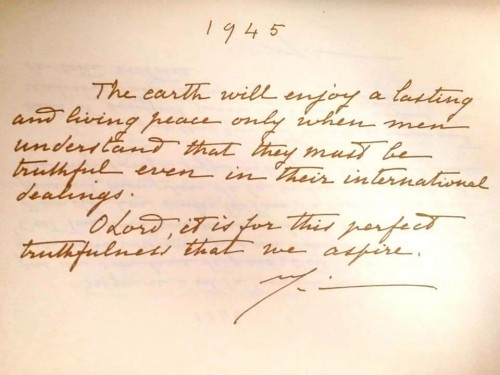 1945
The earth will enjoy a lasting
and living peace only when men
understand that they must be
truthful even in their international
dealings.
O Lord, it is for this perfect
truthfulness that we aspire.